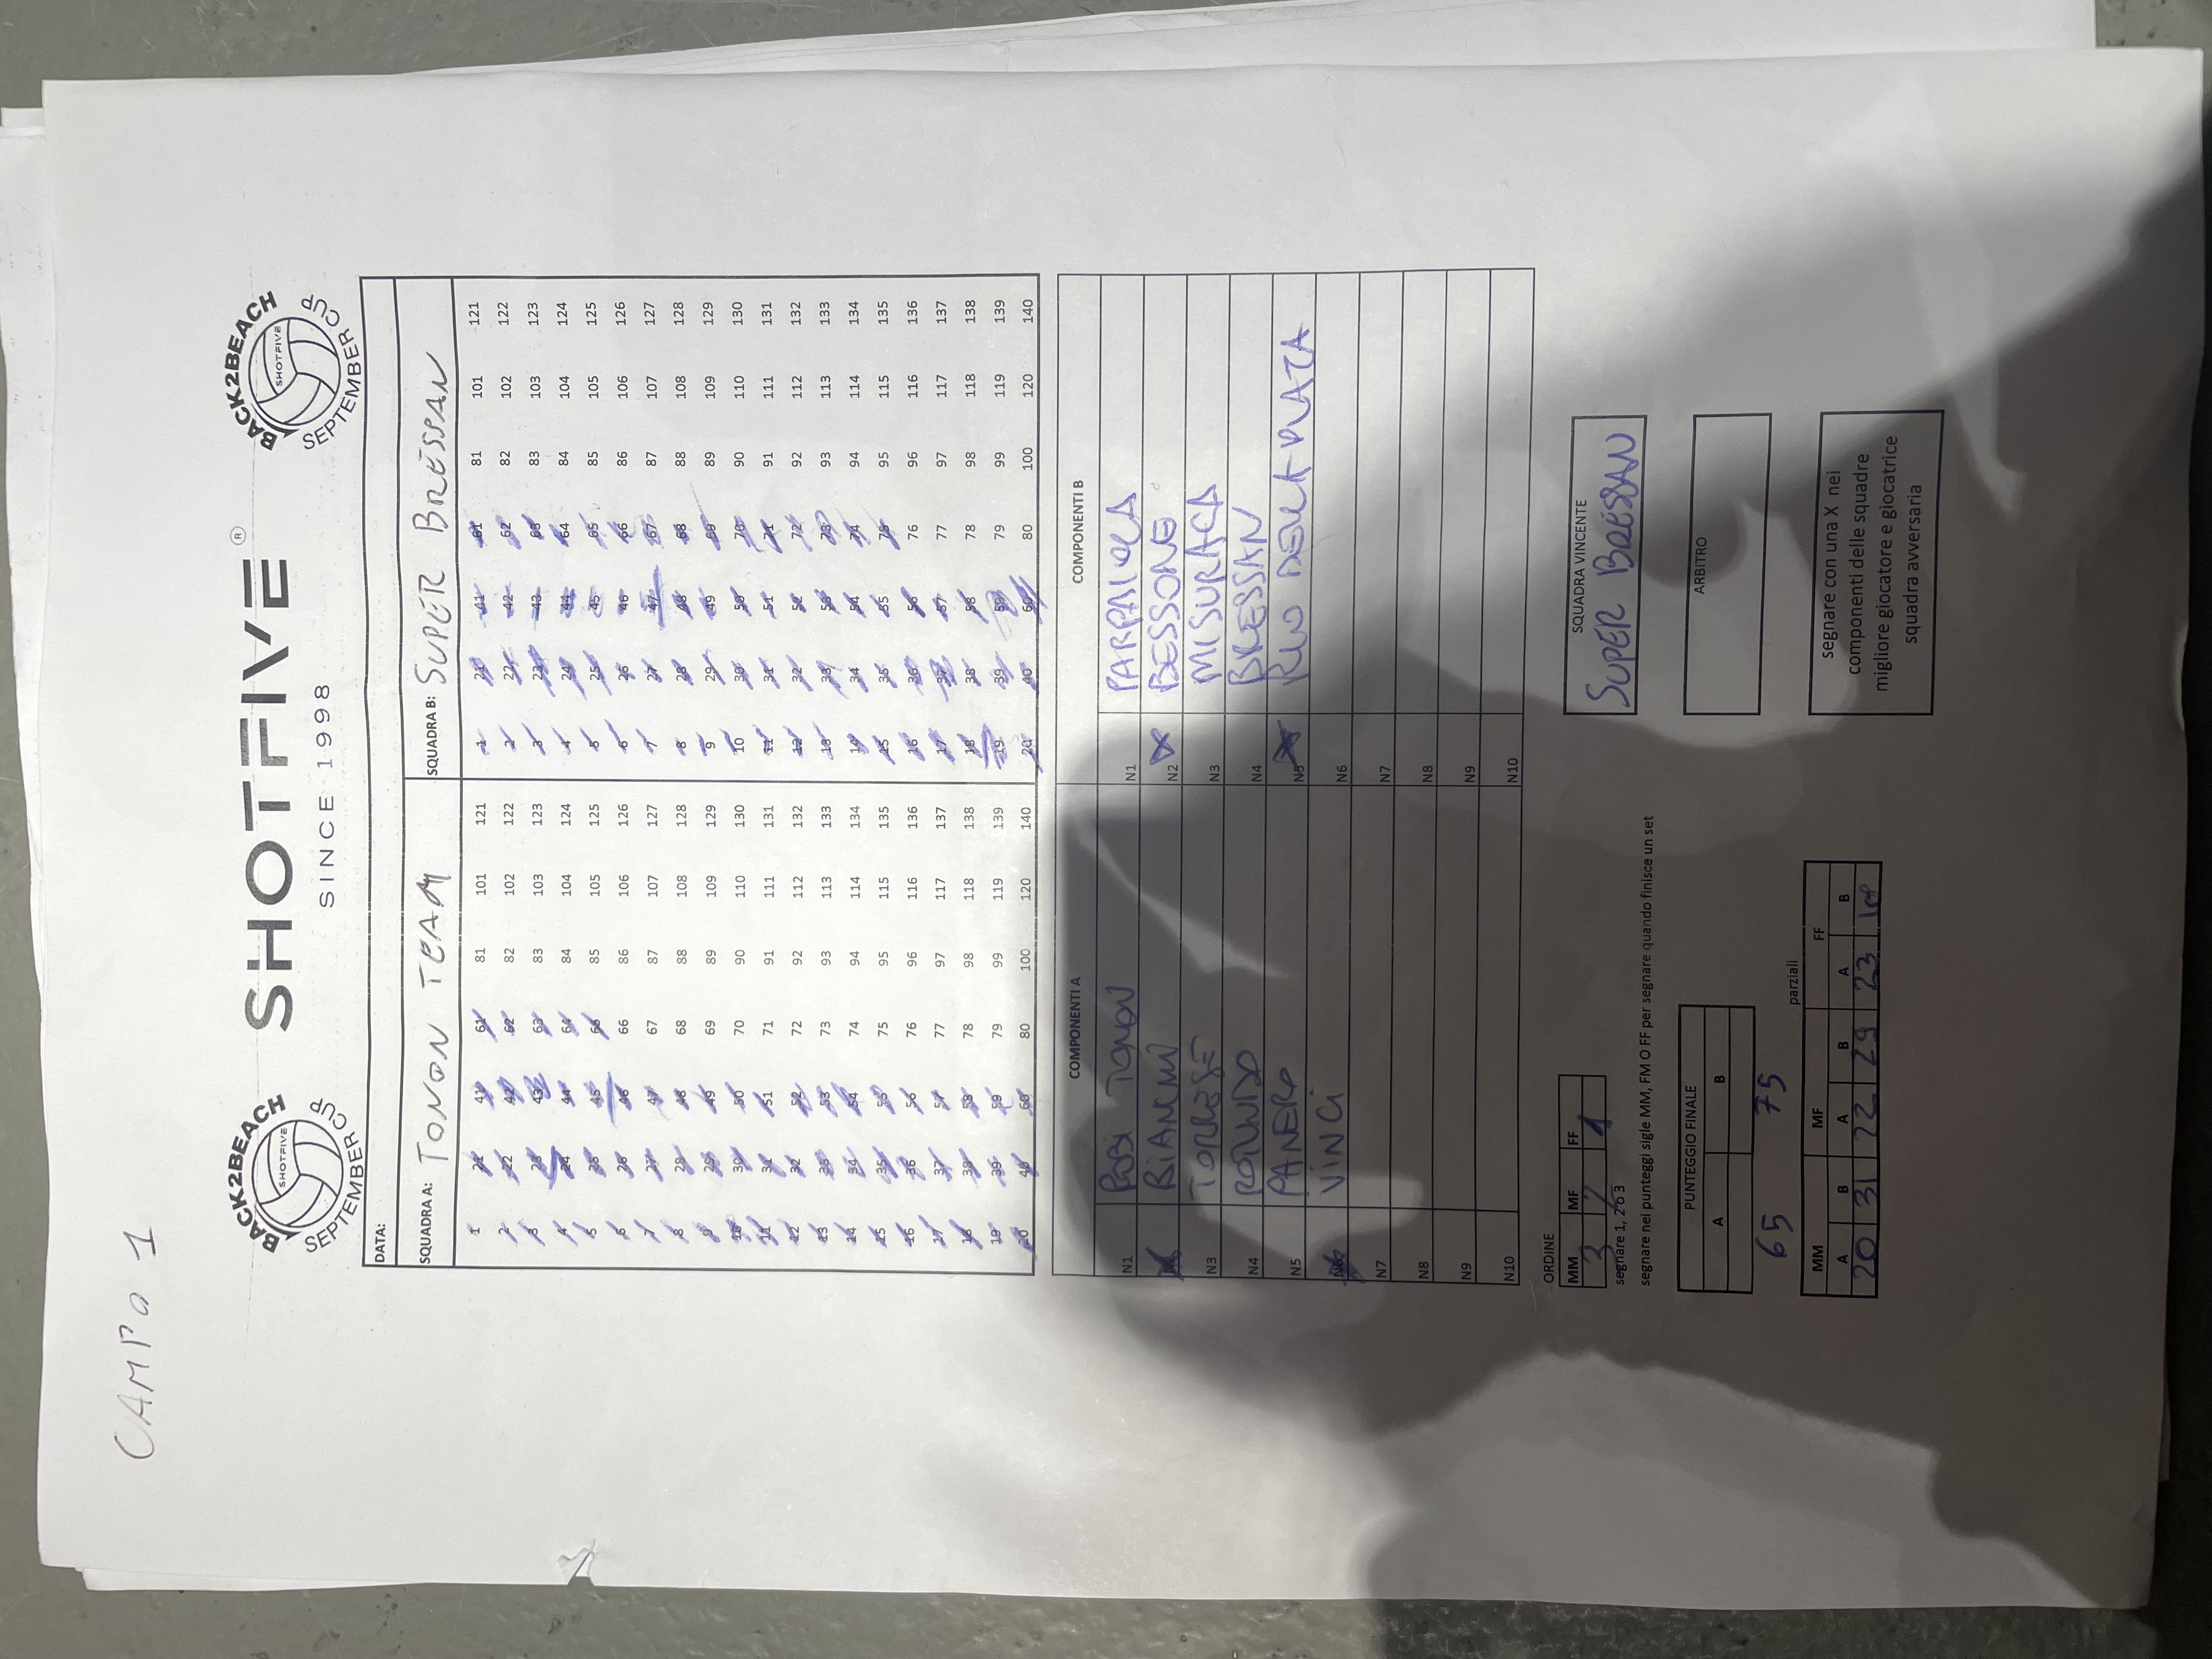 CAMPO 1
BACK2BEACH
SHOTFIVE
SEPTEMBER CUP
SHOTFIVE ®
SINCE 1998
BACK2BEACH
SHOTFIVE
SEPTEMBER CUP
DATA:
SQUADRA A: TONON TEAM SQUADRA B: SUPER BRESSAN
1 21 41 61 81 101 121 1 21 41 61 81 101 121
2 22 42 62 82 102 122 2 22 42 62 82 102 122
3 23 43 63 83 103 123 3 23 43 63 83 103 123
4 24 44 64 84 104 124 4 24 44 64 84 104 124
5 25 45 65 85 105 125 5 25 45 65 85 105 125
6 26 46 66 86 106 126 6 26 46 66 86 106 126
7 27 47 67 87 107 127 7 27 47 67 87 107 127
8 28 48 68 88 108 128 8 28 48 68 88 108 128
9 29 49 69 89 109 129 9 29 49 69 89 109 129
10 30 50 70 90 110 130 10 30 50 70 90 110 130
11 31 51 71 91 111 131 11 31 51 71 91 111 131
12 32 52 72 92 112 132 12 32 52 72 92 112 132
13 33 53 73 93 113 133 13 33 53 73 93 113 133
14 34 54 74 94 114 134 14 34 54 74 94 114 134
15 35 55 75 95 115 135 15 35 55 75 95 115 135
16 36 56 76 96 116 136 16 36 56 76 96 116 136
17 37 57 77 97 117 137 17 37 57 77 97 117 137
18 38 58 78 98 118 138 18 38 58 78 98 118 138
19 39 59 79 99 119 139 19 39 59 79 99 119 139
20 40 60 80 100 120 140 20 40 60 80 100 120 140
COMPONENTI A COMPONENTI B
N1 TONON N1
N2 N2 BESSONE
N3 N3 MISURACA
N4 N4 BRESSAN
N5 PANERO N5
N6 VINCI N6
N7 N7
N8 N8
N9 N9
N10 N10
ORDINE
MM MF FF
3 2 1
segnare 1, 2 o 3
segnare nei punteggi sigle MM, FM O FF per segnare quando finisce un set
SQUADRA VINCENTE
SUPER BRESSAN
PUNTEGGIO FINALE
A B
65 75
ARBITRO
parziali
MM MF FF
A B A B A B
20 31 22 29 23
segnare con una X nei
componenti delle squadre
migliore giocatore e giocatrice
squadra avversaria